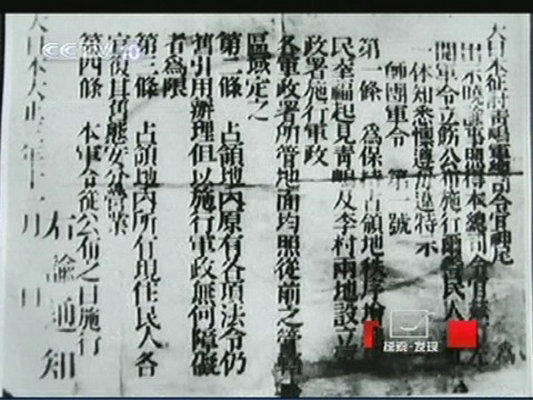 大日本征討靑嶋軍總司令官神尾 爲
出示曉諭事照得本總司令官
開軍令立飭公布施行爾管民人
一体知悉懍遵毋違特示
師團軍令 第一號
第一條 爲保持占領地秩序增
民莝福起見靑嶋及李村兩地設立
政署施行軍政
各軍政署所管地面均照從前之管轄
區域定之
第二條 占領地內原有各項法令仍
舊引用辦理但以施行軍政無何障礙
者爲限
第三條 占領地內所有現住民人各
宜復其舊態安分營業
第四條 本軍令從公布之日施行
大日本大正三年十一月 日
右諭通知
CCTV 10
探索·发现